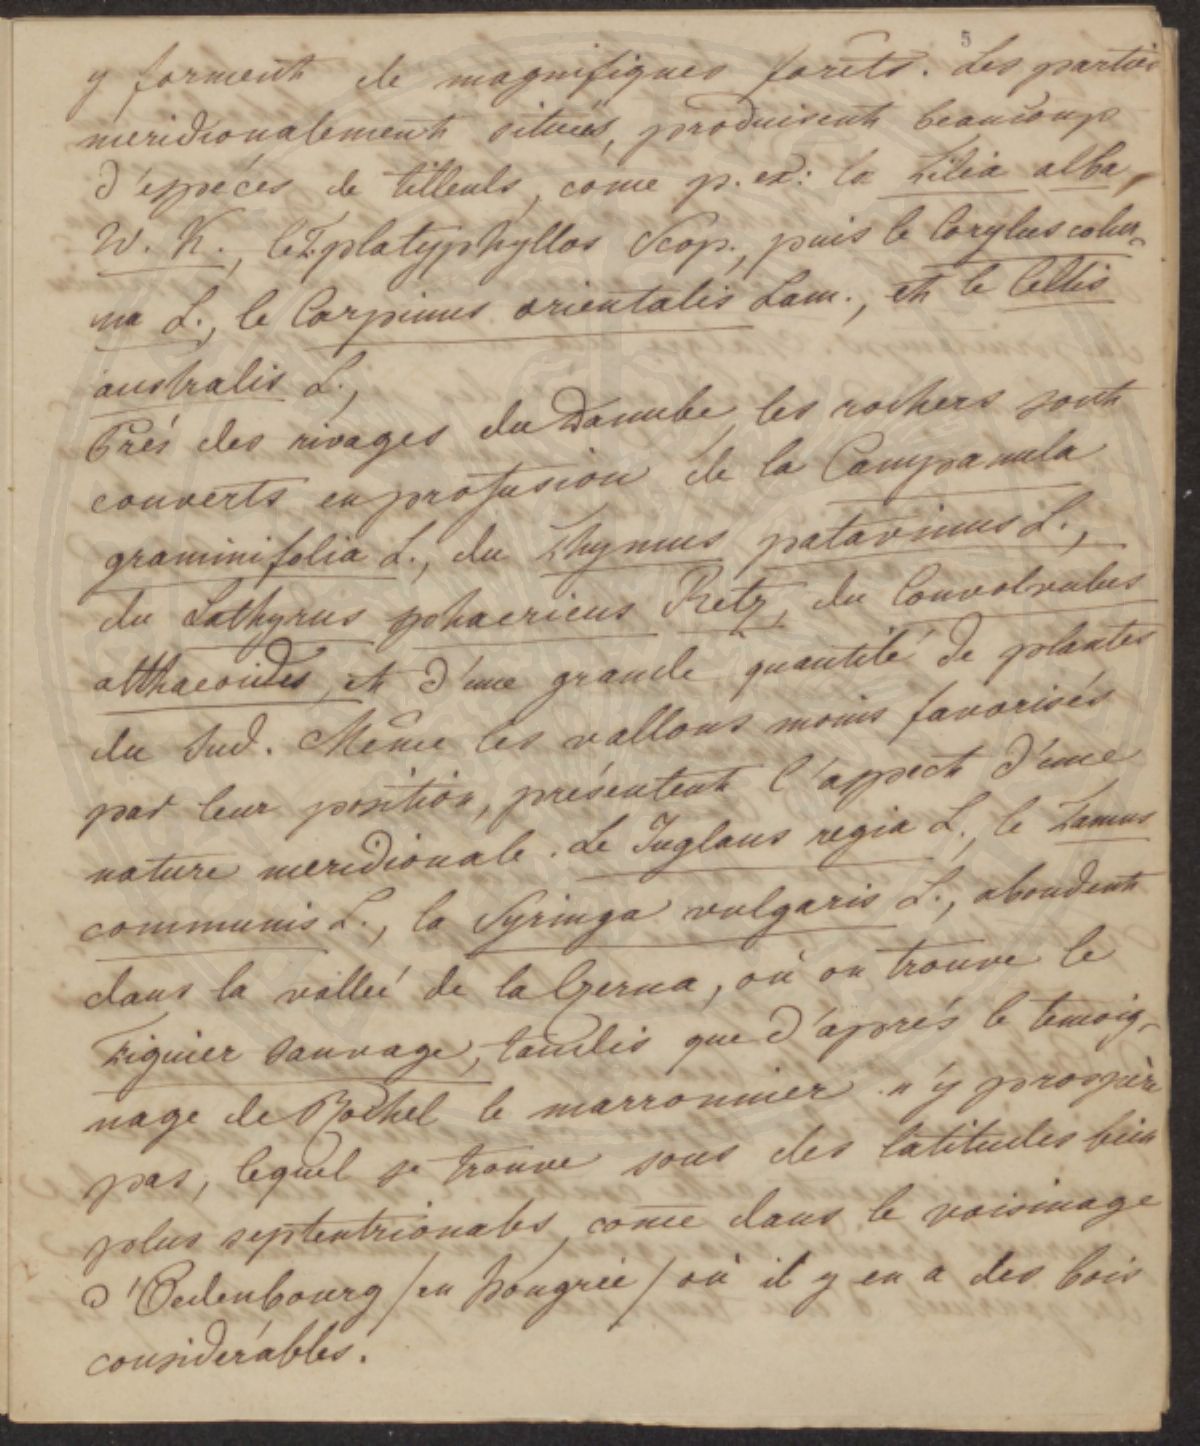 5
y forment de magnifiques forêts. Les parties
meridionalement situées, produisent beaucoup
d'espéces de tilleuls, come p. ex: la Tilia alba,
W. K., le T. platyphyllos Scop., puis le Corylus colur-
na L., le Carpinus orientalis Lam., et le Celtis
australis L.,
Prés des rivages du Danube les rochers sont
couverts en profusion de la Campanula
graminifolia L., du Thymus patavinus L.,
du Lathyrus sphaericus Retz, du Convolvulus
althaeoides, et d'une grande quantité de plantes
du Sud. Même les vallons moins favorisés
par leur position, présentent l'aspect d'une
nature meridionale. Le Juglans regia L., le Tamus
communis L., la Syringa vulgaris L., abondent
dans la valleé de la Czerna, où on trouve le
Figuier sauvage, tandis que d'aprés le temoig-
nage de Rochel le marronnier n'y prospère
pas, lequel se trouve sous des latitudes bien
plus septentrionales, come dans le voisinage
d'Oedenbourg / en Hongrie / où il y en a des bois
considérables.